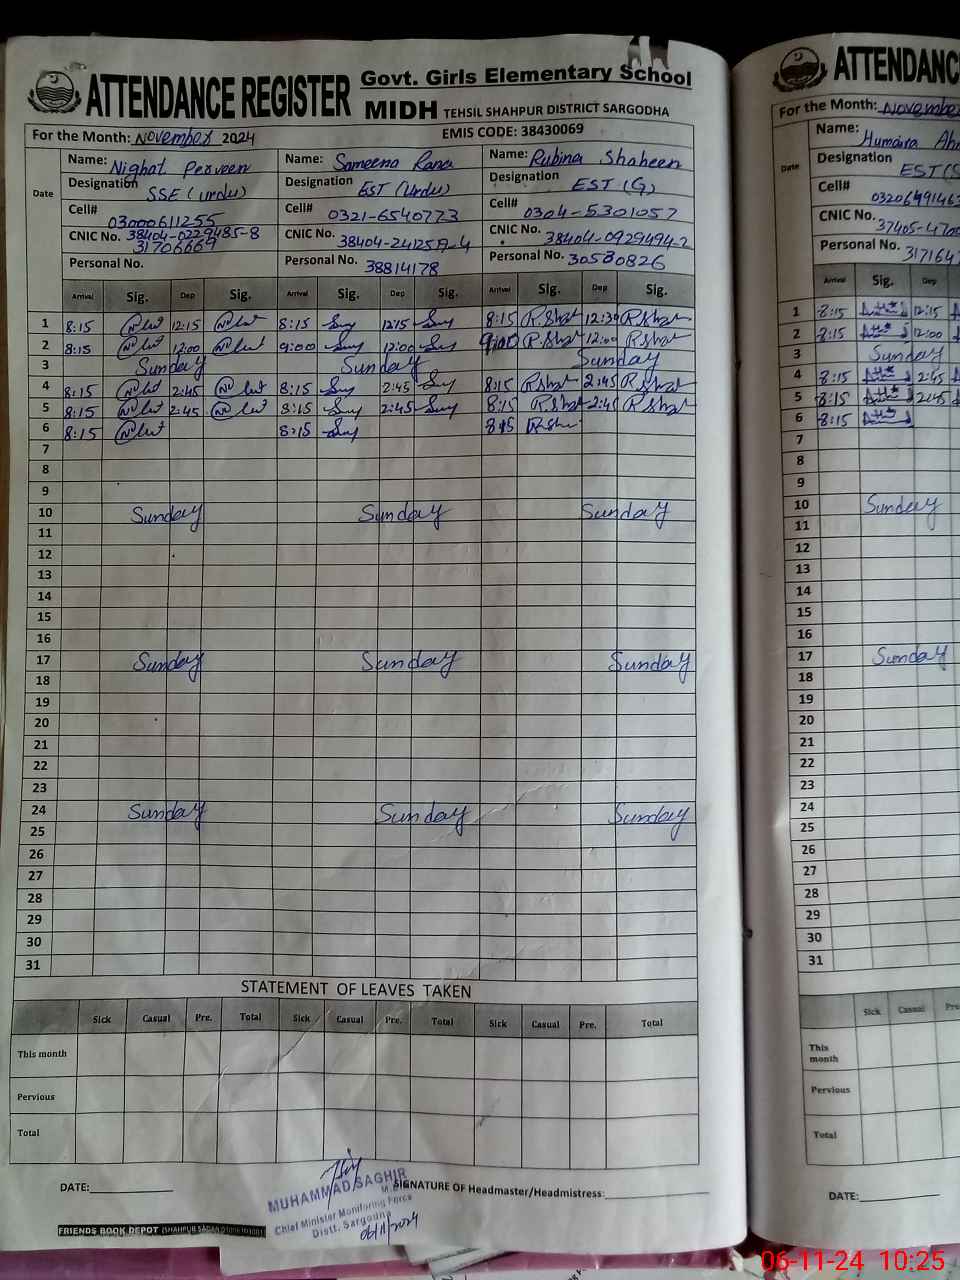 ATTENDANCE REGISTER Govt. Girls Elementary School
MIDH TEHSIL SHAHPUR DISTRICT SARGODHA
For the Month: November 2024 EMIS CODE: 38430069
Date
Name: Nighat Perveen Name: Sameena Rana Name: Rubina Shaheen
Designation SSE (Urdu) Designation EST (Urdu) Designation EST (G)
Cell# 03000611255 Cell# 0321-6540773 Cell# 0304-5301057
CNIC No. 38404-0229485-8 CNIC No. CNIC No. 38404-0929494-2
Personal No. 31706669 Personal No. 38814178 Personal No. 30580826
Arrival Sig. Dep Sig. Arrival Sig. Dep Sig. Arrival Sig. Dep Sig.
1 8:15 12:15 8:15 12:15 8:15 12:30
2 8:15 12:00 9:00 12:00 9:00 12:00
3 Sunday Sunday Sunday
4 8:15 2:45 8:15 2:45 8:15 2:45
5 8:15 2:45 8:15 2:45 8:15 2:45
6 8:15 8:15 8:15
7
8
9
10 Sunday Sunday Sunday
11
12
13
14
15
16
17 Sunday Sunday Sunday
18
19
20
21
22
23
24 Sunday Sunday Sunday
25
26
27
28
29
30
31
STATEMENT OF LEAVES TAKEN
Sick Casual Pre. Total Sick Casual Pre. Total Sick Casual Pre. Total
This month
Pervious
Total
DATE: SIGNATURE OF Headmaster/Headmistress:
MUHAMMAD SAGHIR
Chief Minister Monitoring Force
Distt. Sargodha
06/11/2024
FRIENDS BOOK DEPOT
ATTENDANC
For the Month: November
Date
Name: Humaira
Designation EST
Cell#
CNIC No.
Personal No.
Arrival Sig. Dep
1 8:15 12:15
2 8:15 12:00
3 Sunday
4 8:15 2:45
5 8:15 2:45
6 8:15
7
8
9
10 Sunday
11
12
13
14
15
16
17 Sunday
18
19
20
21
22
23
24
25
26
27
28
29
30
31
Sick Casual Pre
This month
Pervious
Total
DATE:
06-11-24 10:25